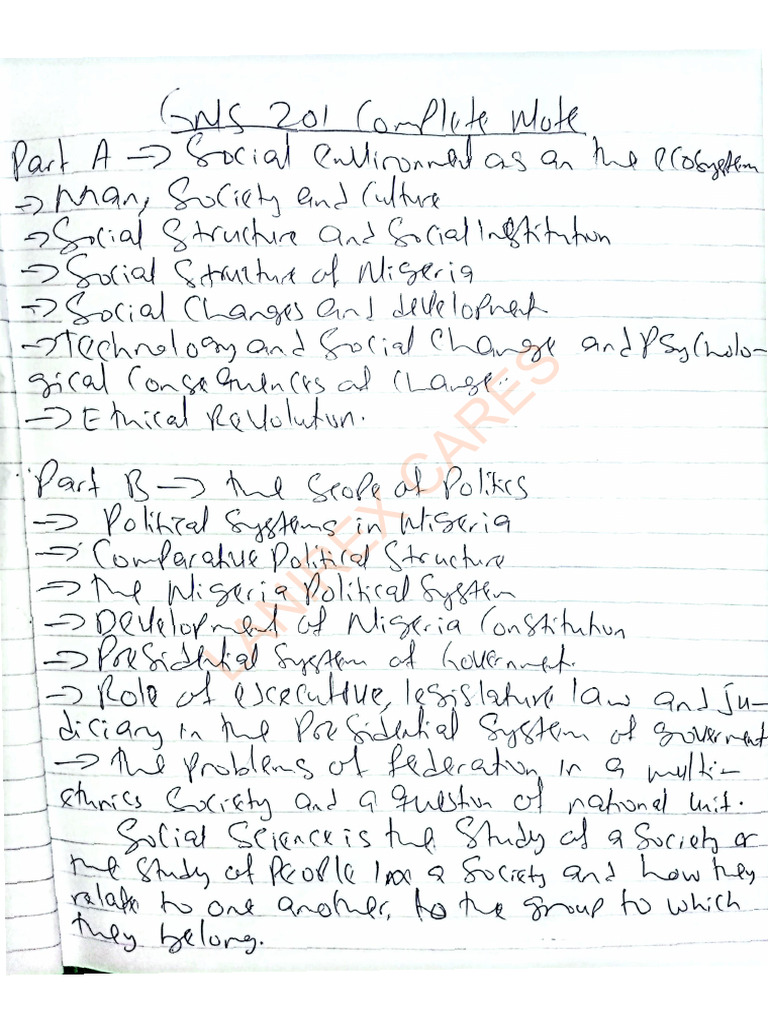 GNS 201 Complete Note
Part A → Social environment as an the ecosystem
→ Man, Society and Culture
→ Social Structure and Social Institution
→ Social Structure of Nigeria
→ Social Changes and development
→ technology and Social Change and Psycholo-
gical Consequences of change..
→ Ethical Revolution.
Part B → the Scope of Politics
→ Political Systems in Nigeria
→ Comparative Political Structure
→ the Nigeria Political System
→ Development of Nigeria Constitution
→ Presidential System of Government.
→ Role of executive, legislature law and Ju-
diciary in the Presidential System of goverment
→ the problems of federation in a multi-
ethnics Society and a question of national unit.
Social Science is the Study of a Society or
the Study of People in a Society and how they
relate to one another, to the group to which
they belong.
LANIREX CARES